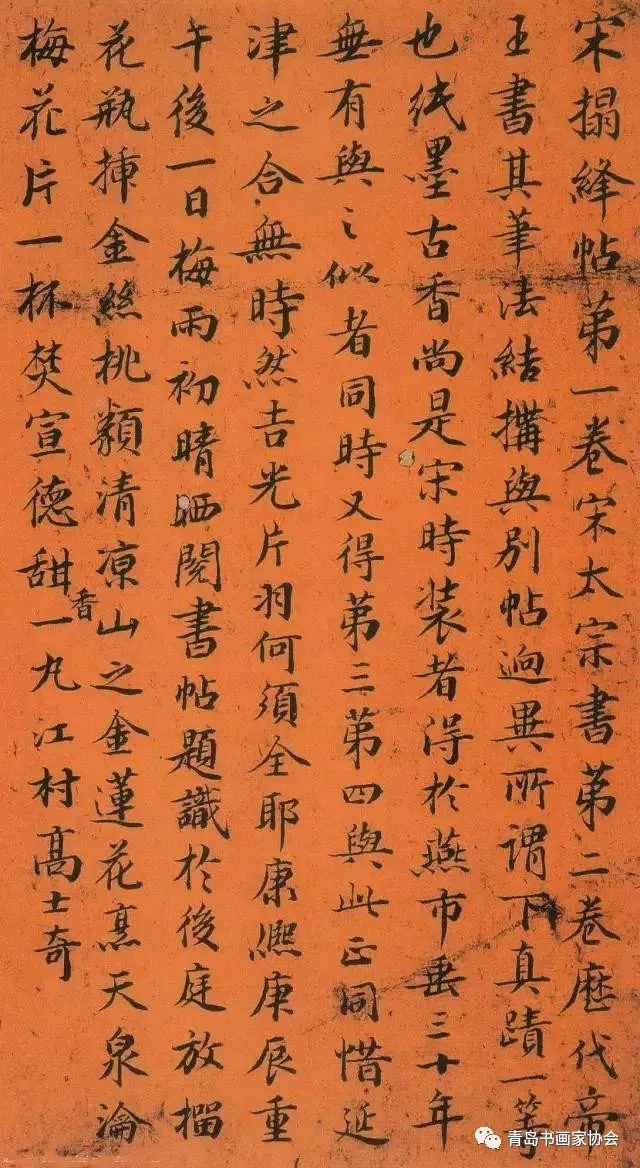 宋搨絳帖第一卷宋太宗書第二卷歷代帝
王書其筆法結搆與別帖迥異所謂下真蹟一等
也紙墨古香尚是宋時装者得於燕市垂三十年
無有與之似者同時又得第三第四與此正同惜延
津之合無時然吉光片羽何須全耶康熙庚辰重
午後一日梅雨初晴晒閱書帖題識於後庭放榴
花瓶揷金絲桃纇清凉山之金蓮花烹天泉瀹
梅花片一杯焚宣德甜香一丸江村高士奇
青岛书画家协会